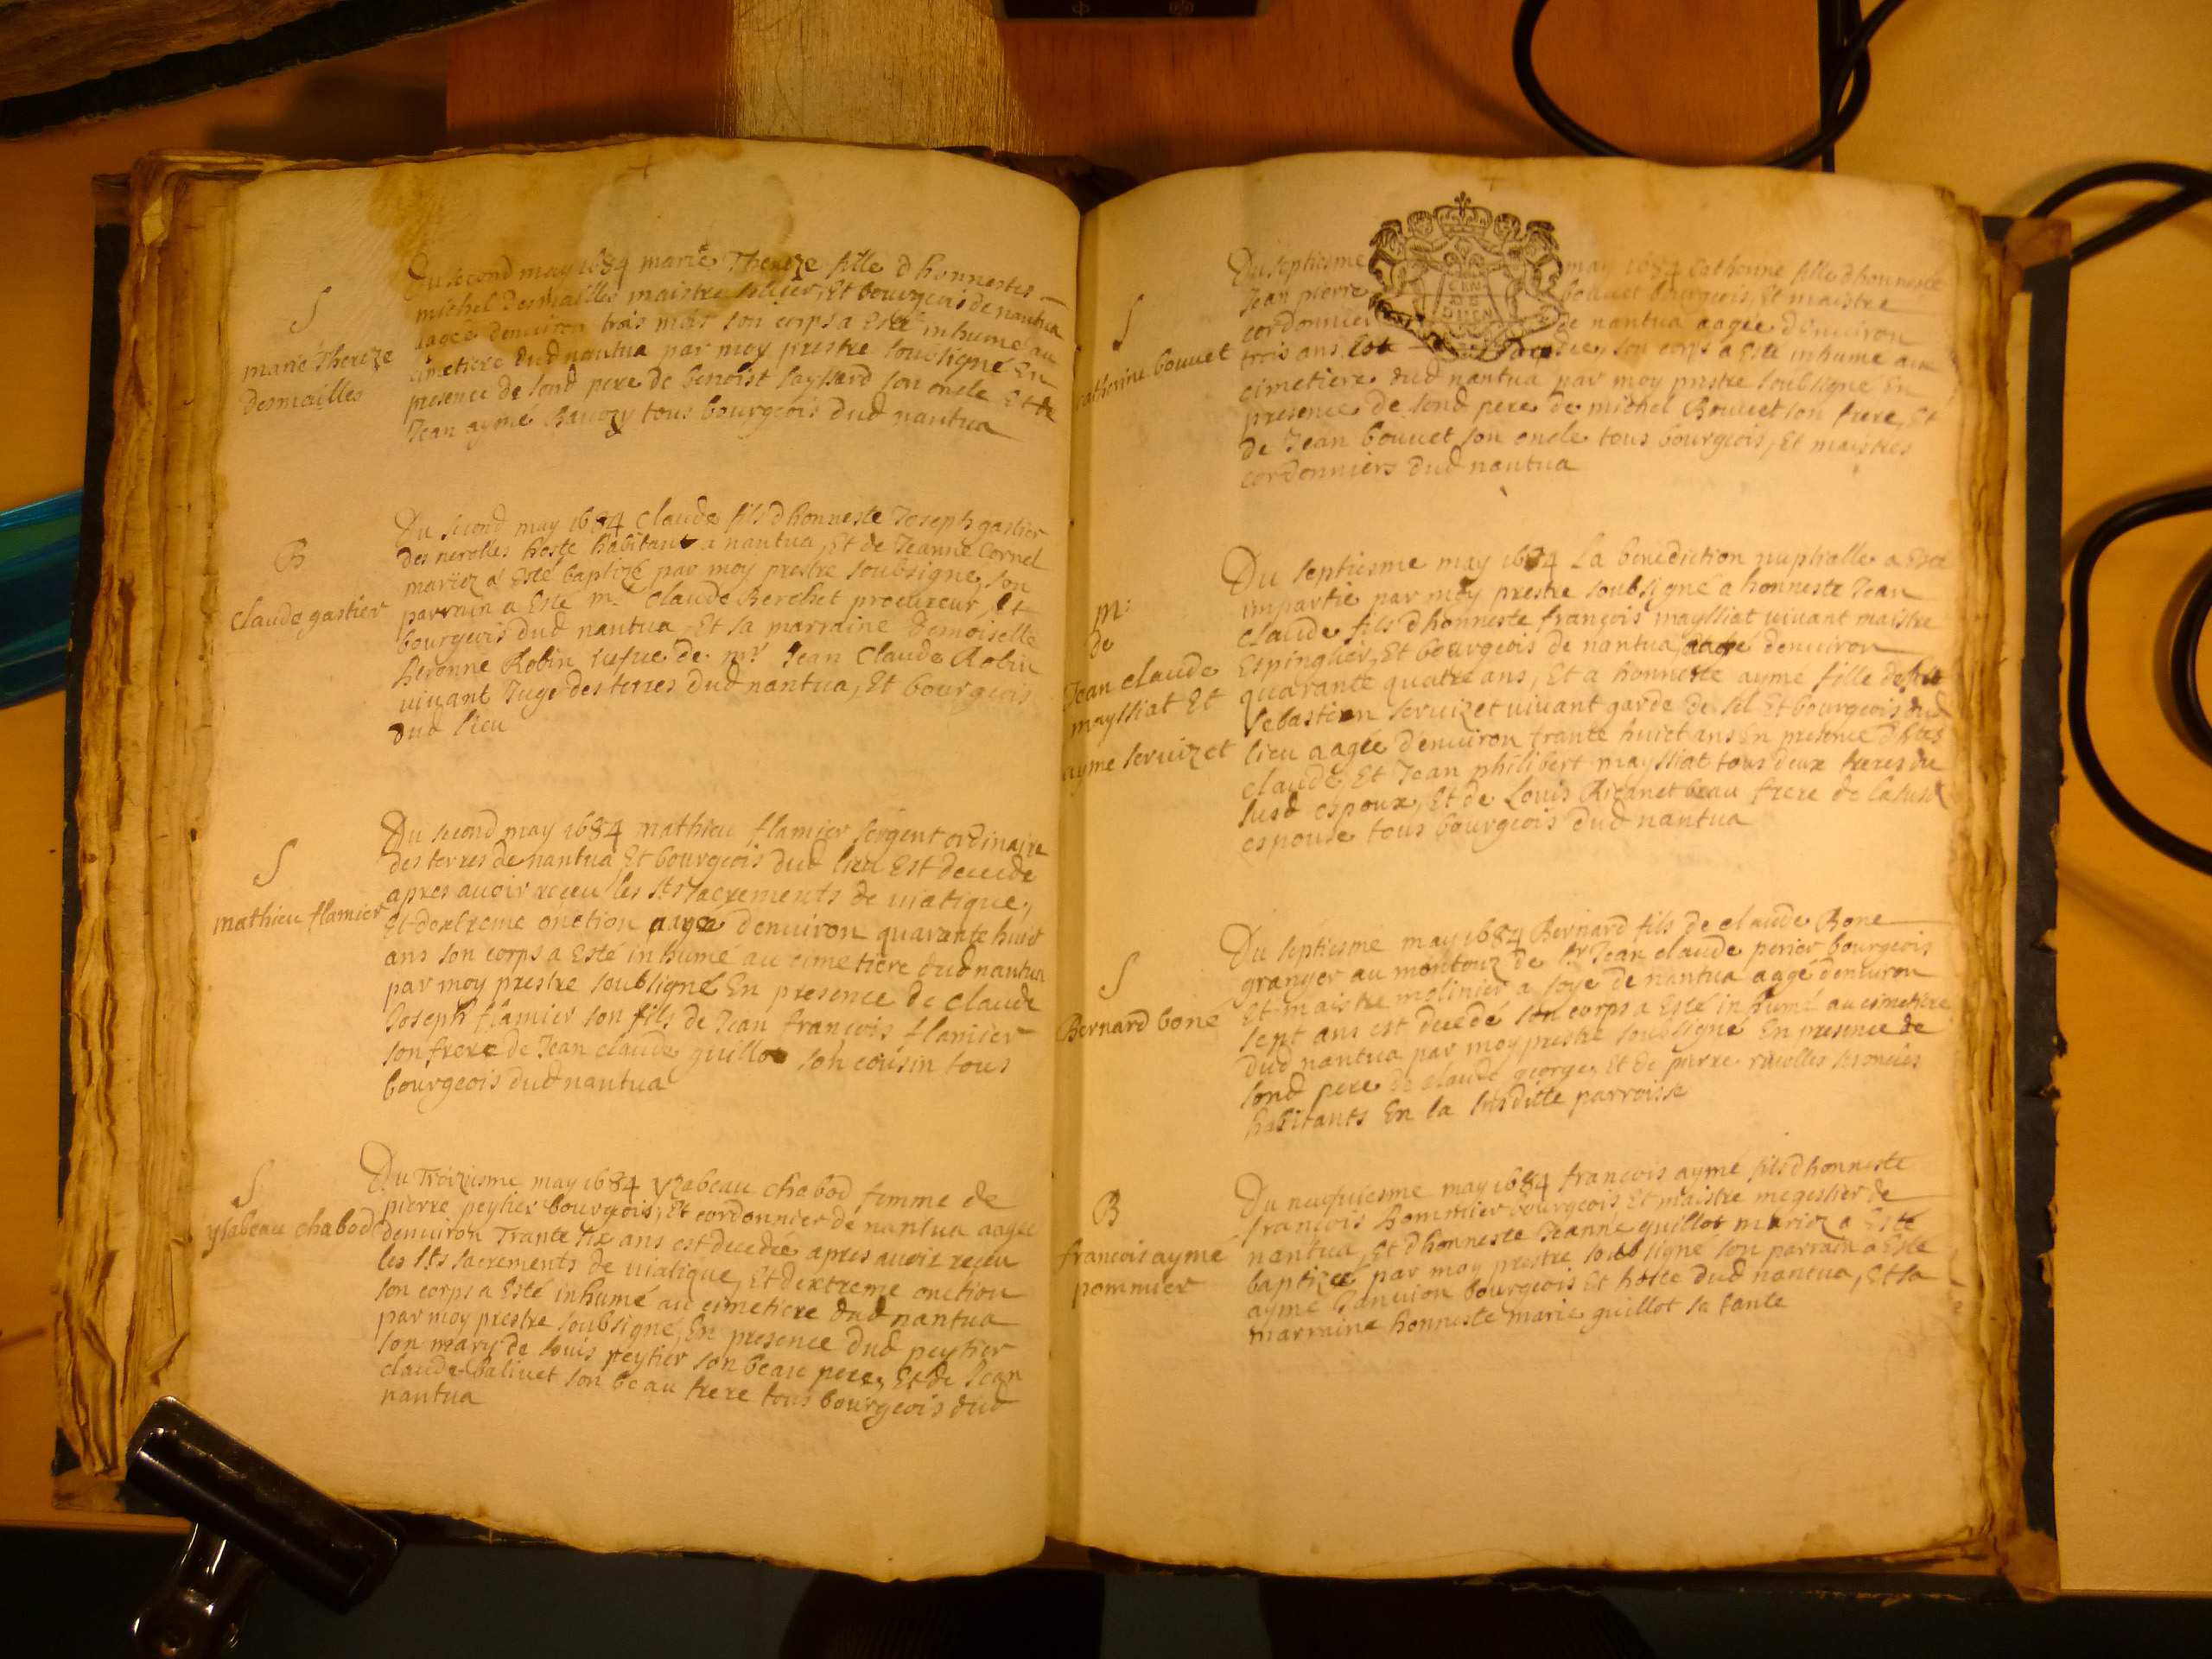 S
marie Thereze
Desmailles
Du second may 1684 marie Thereze fille d honnestes
michel Desmailles maistre Et bourgeois de nantua
aagée denuiron trois mois son corps a Esté inhumé au
cimetiere dud nantua par moy prestre soubsigné En
presence de sond pere de benoist sayssard son oncle Et de
Jean aymé Bauozy tous bourgeois dud nantua
B
claude gastier
Du second may 1684 claude fils d honneste Joseph gastier
des nerolles hoste habitant a nantua, Et de Jeanne Cornel
mariez a Esté baptizé par moy prestre soubsigné, son
parrain a Esté mr Claude Berchet procureur Et
bourgeois dud nantua Et la marraine Demoiselle
Robin de mr Jean Claude Robin
viuant Juge des terres dud nantua, Et bourgeois
dud lieu
S
mathieu flamier
Du second may 1684 mathieu flamier sergent ordinaire
des terres de nantua Et bourgeois dud lieu Est decede
apres auoir receu les sts sacrements de viatique,
Et dextreme onction aagé denuiron quarante huict
ans son corps a Esté inhumé au cimetiere dud nantua
par moy prestre soubsigné En presence de claude
Joseph flamier son fils de Jean françois flamier
son frere de Jean claude guillot son cousin tous
bourgeois dud nantua
S
ysabeau chabod
Du Troiziesme may 1684 ysabeau chabod femme de
pierre peytier bourgeois, Et cordonnier de nantua aagee
denuiron Trante six ans est decedée apres auoir receu
les sts sacrements de viatique, Et dextreme onction
son corps a Esté inhumé au cimetiere dud nantua
par moy prestre soubsigné, En presence dud peytier
son mary de louis peytier son beau pere, Et de Jean
claude baliuet son beau frere tous bourgeois dud
nantua
S
catherine bouuet
Du septiesme may 1684 Catherine fille d honneste
Jean pierre bouuet bourgeois, Et maistre
cordonnier de nantua aagée d enuiron
trois ans Est decedée, son corps a Esté inhumé au
cimetiere dud nantua par moy prestre soubsigné En
presence de sond pere de michel Bouuet son frere, Et
de Jean bouuet son oncle tous bourgeois, Et maistres
cordonniers dud nantua
m:
de
Jean claude
mayssiat Et
ayme seruizet
Du septiesme may 1684 La benediction nuptialle a Esté
impartie par moy prestre soubsigné a honneste Jean
claude fils d honneste françois mayssiat viuant maistre
Espinglier, Et bourgeois de nantua aagé denuiron
quarante quatre ans, Et a honneste ayme fille de
sebastien seruizet viuant garde de sel Et bourgeois dud
lieu aagée denuiron trante huict ans En presence d htes
claude Et Jean philibert mayssiat tous deux freres du
susd espoux, Et de Louis Ricanet beau frere de la susd
espouse tous bourgeois dud nantua
S
Bernard bone
Du septiesme may 1684 Bernard fils de claude Bone
granger au montouz de sr Jean claude perier bourgeois
Et maistre molinier a soye de nantua aagé denuiron
sept ans est decedé son corps a Esté inhumé au cimetiere
dud nantua par moy prestre soubsigné En presence de
sond pere de claude george, Et de pierre
habitants En la susditte parroisse
B
francois aymé
pommier
Du neufuiesme may 1684 francois aymé fils d honneste
francois Pommier bourgeois Et maistre megissier de
nantua, Et d honneste Jeanne guillot mariez a Esté
baptizé par moy prestre soubsigné son parrain a Esté
aymé Januion bourgeois Et hoste dud nantua, Et la
marraine honneste marie guillot sa tante